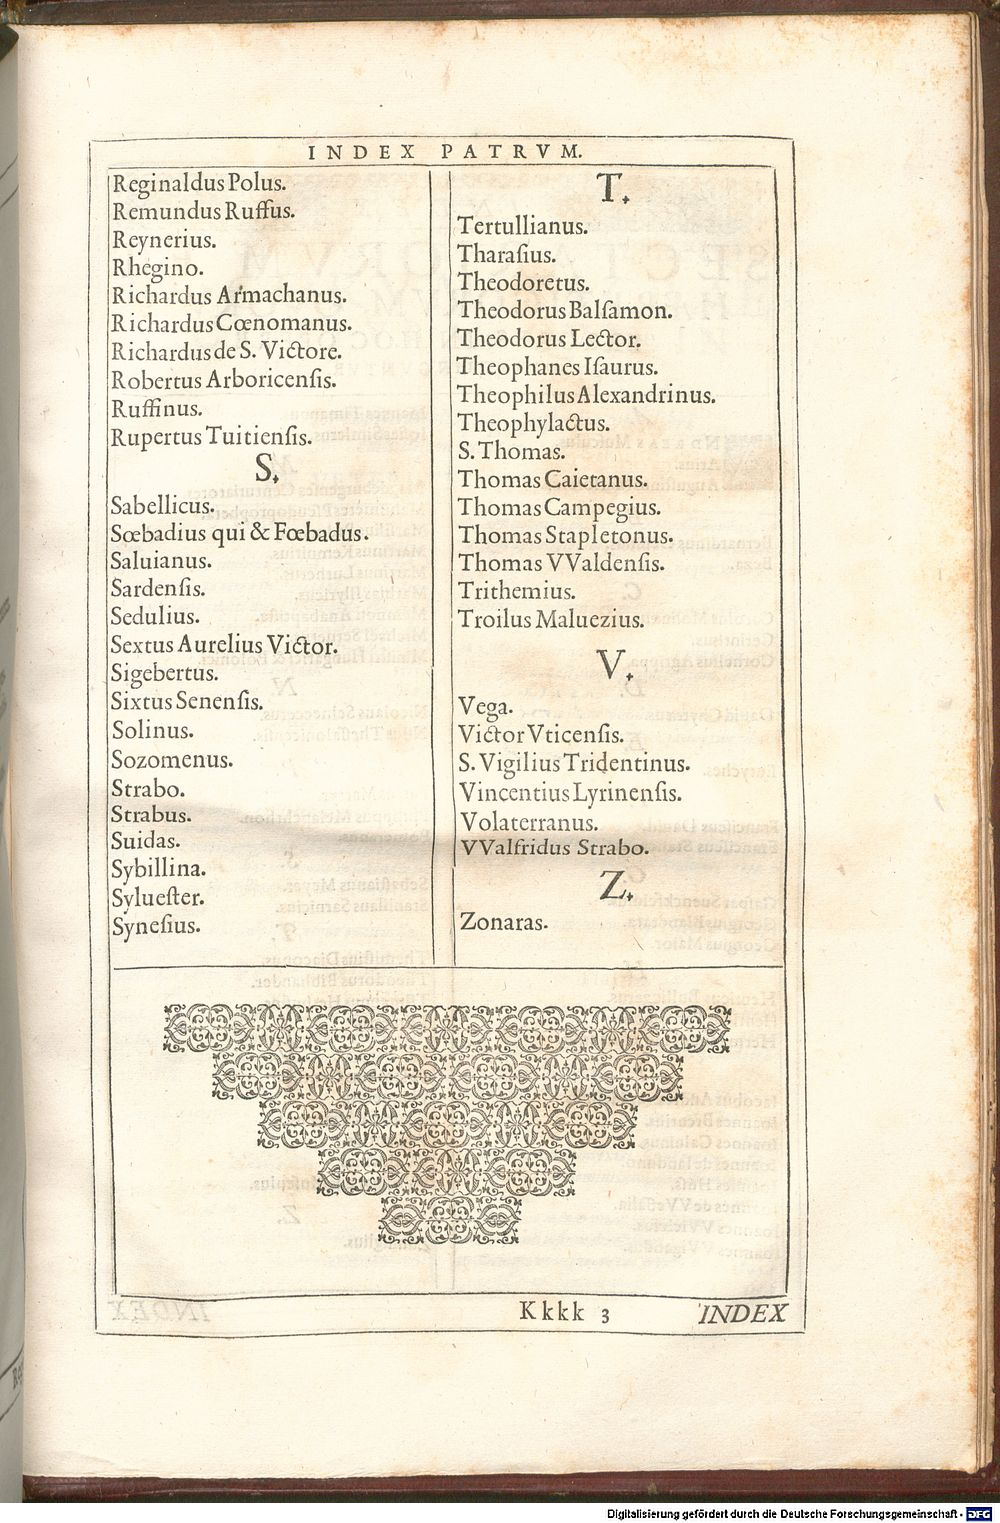 INDEX PATRVM.
Reginaldus Polus.
Remundus Ruffus.
Reynerius.
Rhegino.
Richardus Armachanus.
Richardus Cœnomanus.
Richardus de S. Victore.
Robertus Arboricenſis.
Ruffinus.
Rupertus Tuitienſis.
S.
Sabellicus.
Sœbadius qui & Fœbadus.
Saluianus.
Sardenſis.
Sedulius.
Sextus Aurelius Victor.
Sigebertus.
Sixtus Senenſis.
Solinus.
Sozomenus.
Strabo.
Strabus.
Suidas.
Sybillina.
Sylueſter.
Syneſius.
T.
Tertullianus.
Tharaſius.
Theodoretus.
Theodorus Balſamon.
Theodorus Lector.
Theophanes Iſaurus.
Theophilus Alexandrinus.
Theophylactus.
S. Thomas.
Thomas Caietanus.
Thomas Campegius.
Thomas Stapletonus.
Thomas VValdenſis.
Trithemius.
Troilus Maluezius.
V.
Vega.
Victor Vticenſis.
S. Vigilius Tridentinus.
Vincentius Lyrinenſis.
Volaterranus.
VValfridus Strabo.
Z.
Zonaras.
Kkkk 3
INDEX
Digitalisierung gefördert durch die Deutsche Forschungsgemeinschaft - DFG